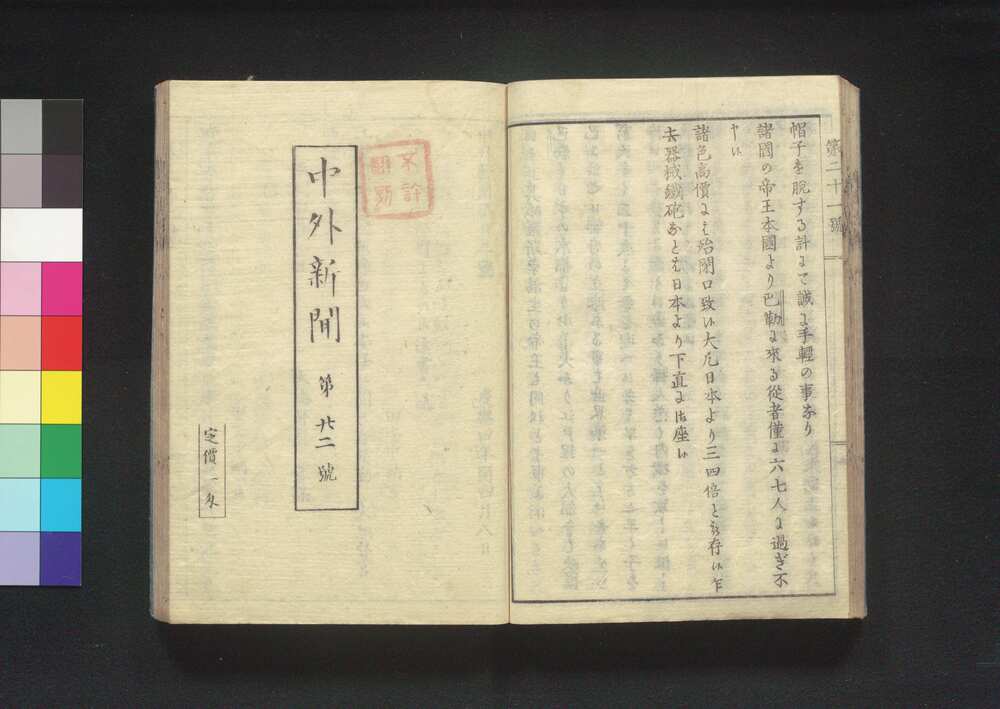 第二十一號
帽子を脱する計にて誠に手輕の事なり
諸國の帝王本國より巴勒に來る從者僅に六七人に過ぎ不
申候
諸色高價には殆閉口致候大凡日本より三四倍と被存候乍
去器械鐵砲などは日本より下直に御座候
不許
翻刻
中外新聞 第廿二號
定價一匁